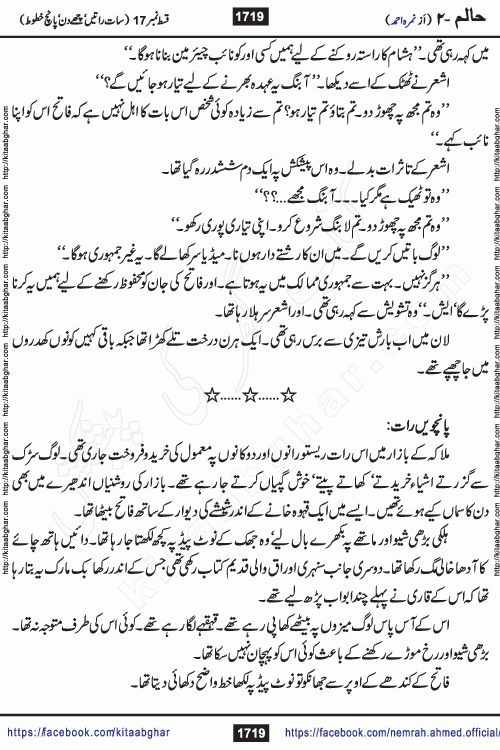 حالم -۲ (از نمرہ احمد)
1719
قسط نمبر 17 (سات راتیں، چھے دن، پانچ خطوط)
میں کہہ رہی تھی۔ ”ہشام کا راستہ روکنے کے لیے ہمیں کسی اور کو نائب چیئر مین بنانا ہوگا۔“
اشعر نے ٹھٹک کے اسے دیکھا۔ ”آبنگ یہ عہدہ بھرنے کے لیے تیار ہو جائیں گے؟“
”وہ تم مجھ پہ چھوڑ دو۔ تم بتاؤ تم تیار ہو؟ تم سے زیادہ کوئی شخص اس بات کا اہل نہیں ہے کہ فاتح اس کو اپنا
نائب کہے۔“
اشعر کے تاثرات بدلے۔ وہ اس پیشکش پہ ایک دم ششدر رہ گیا تھا۔
”وہ تو ٹھیک ہے مگر کیا۔۔۔ آبنگ مجھے...؟؟“
”وہ تم مجھ پہ چھوڑ دو۔ تم لابنگ شروع کرو۔ اپنی تیاری پوری رکھو۔“
”لوگ باتیں کریں گے۔ میں ان کا رشتے دار ہوں نا۔ میڈیا سر کھا لے گا۔ یہ غیر جمہوری ہوگا۔“
”ہرگز نہیں۔ بہت سے جمہوری ممالک میں یہ ہوتا ہے۔ اور فاتح کی جان کو محفوظ رکھنے کے لیے ہمیں یہ کرنا
پڑے گا‘ ایش۔“ وہ تشویش سے کہہ رہی تھی۔ اور اشعر سر ہلا رہا تھا۔
لان میں اب بارش تیزی سے برس رہی تھی۔ ایک ہرن درخت تلے کھڑا تھا جبکہ باقی کہیں کونوں کھدروں
میں جا چھپے تھے۔
☆......☆......☆
پانچویں رات:
ملاکہ کے بازار میں اس رات ریستورانوں اور دوکانوں پہ معمول کی خرید و فروخت جاری تھی۔ لوگ سڑک
سے گزرتے اشیاء خریدتے‘ کھاتے پیتے‘ خوش گپیاں کرتے جا رہے تھے۔ بازار کی روشنیاں اندھیرے میں بھی
دن کا سماں کیے ہوئے تھیں۔ ایسے میں ایک قہوہ خانے کے اندر شیشے کی دیوار کے ساتھ فاتح بیٹھا تھا۔
ہلکی بڑھی شیو اور ماتھے پہ بکھرے بال لیے وہ جھک کے نوٹ پیڈ پہ کچھ لکھتا جا رہا تھا۔ دائیں ہاتھ چائے
کا آدھا خالی مگ رکھا تھا۔ دوسری جانب سنہری اوراق والی قدیم کتاب رکھی تھی جس کے اندر رکھا بک مارک یہ بتا رہا
تھا کہ اس کے قاری نے پہلے چند ابواب پڑھ لیے تھے۔
اس کے آس پاس لوگ میزوں پہ بیٹھے کھا پی رہے تھے۔ قہقہے لگا رہے تھے۔ کوئی اس کی طرف متوجہ نہ تھا۔
بڑھی شیو اور رخ موڑے رکھنے کے باعث کوئی اس کو پہچان نہیں سکا تھا۔
فاتح کے کندھے کے اوپر سے جھانکو تو نوٹ پیڈ پہ لکھا خط واضح دکھائی دیتا تھا۔
https://facebook.com/kitaabghar
1719
https://facebook.com/nemrah.ahmed.official/
http://kitaabghar.com http://kitaabghar.com http://kitaabghar.com http://kitaabghar.com http://kitaabghar.com http://kitaabghar.com
http://kitaabghar.com http://kitaabghar.com http://kitaabghar.com http://kitaabghar.com http://kitaabghar.com http://kitaabghar.com